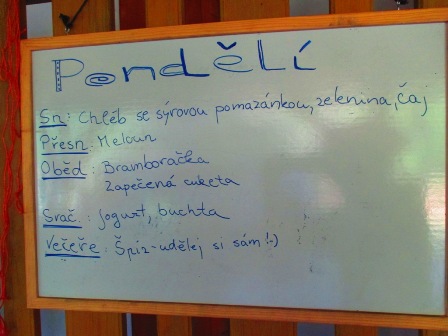 Pondělí
Sn: Chléb se sýrovou pomazánkou, zelenina, čaj
Přesn: Meloun
Oběd: Bramboračka
Zapečená cuketa
Svač: jogurt, buchta
Večeře: Špíz-udělej si sám!:-)